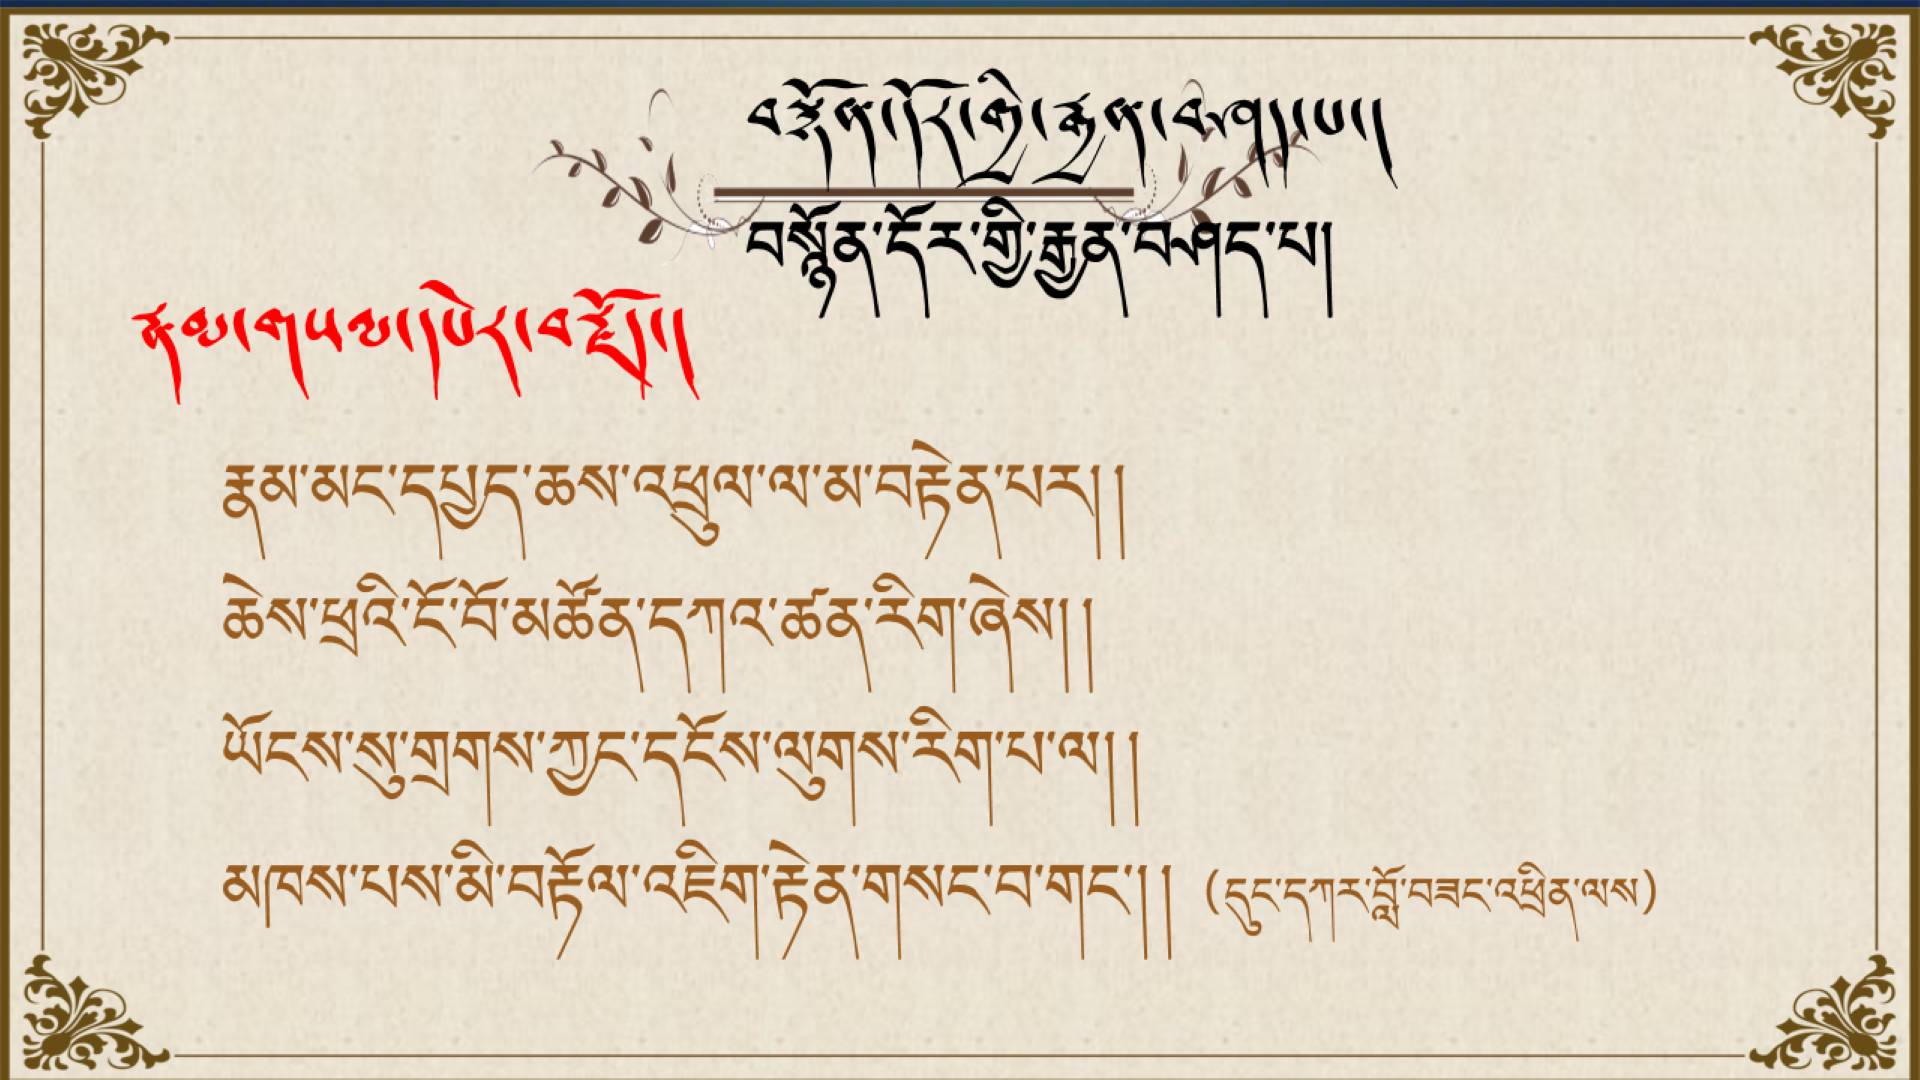 བསྙོན་དོར་གྱི་རྒྱན་བཤད་པ།
བསྙོན་དོར་གྱི་རྒྱན་བཤད་པ།
དཔེར་བརྗོད།
རྣམ་མང་དཔྱད་ཆས་འཕྲུལ་ལ་མ་བརྟེན་པར།།
ཆེས་ཕྲའི་ངོ་བོ་མཚོན་དཀའ་ཚན་རིག་ཞེས།།
ཡོངས་སུ་གྲགས་ཀྱང་དངོས་ལུགས་རིག་པ་ལ།།
མཁས་པས་མི་བརྟོལ་འཇིག་རྟེན་གསང་བ་གང་།། (དུང་དཀར་བློ་བཟང་འཕྲིན་ལས)